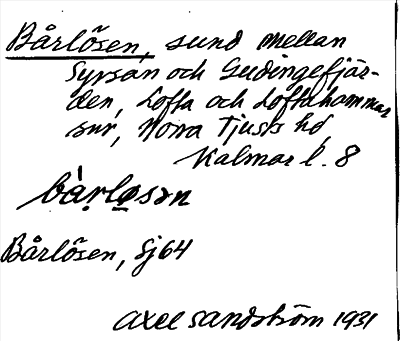 Bårlösen, sund mellan
Syrsan och Gudingefjär-
den, Lofta och Loftahammar
snr, Norra Tjusts hd,
Kalmar l. 8
bàrløsən
Bårlösen, Sj 64
Axel Sandström 1931